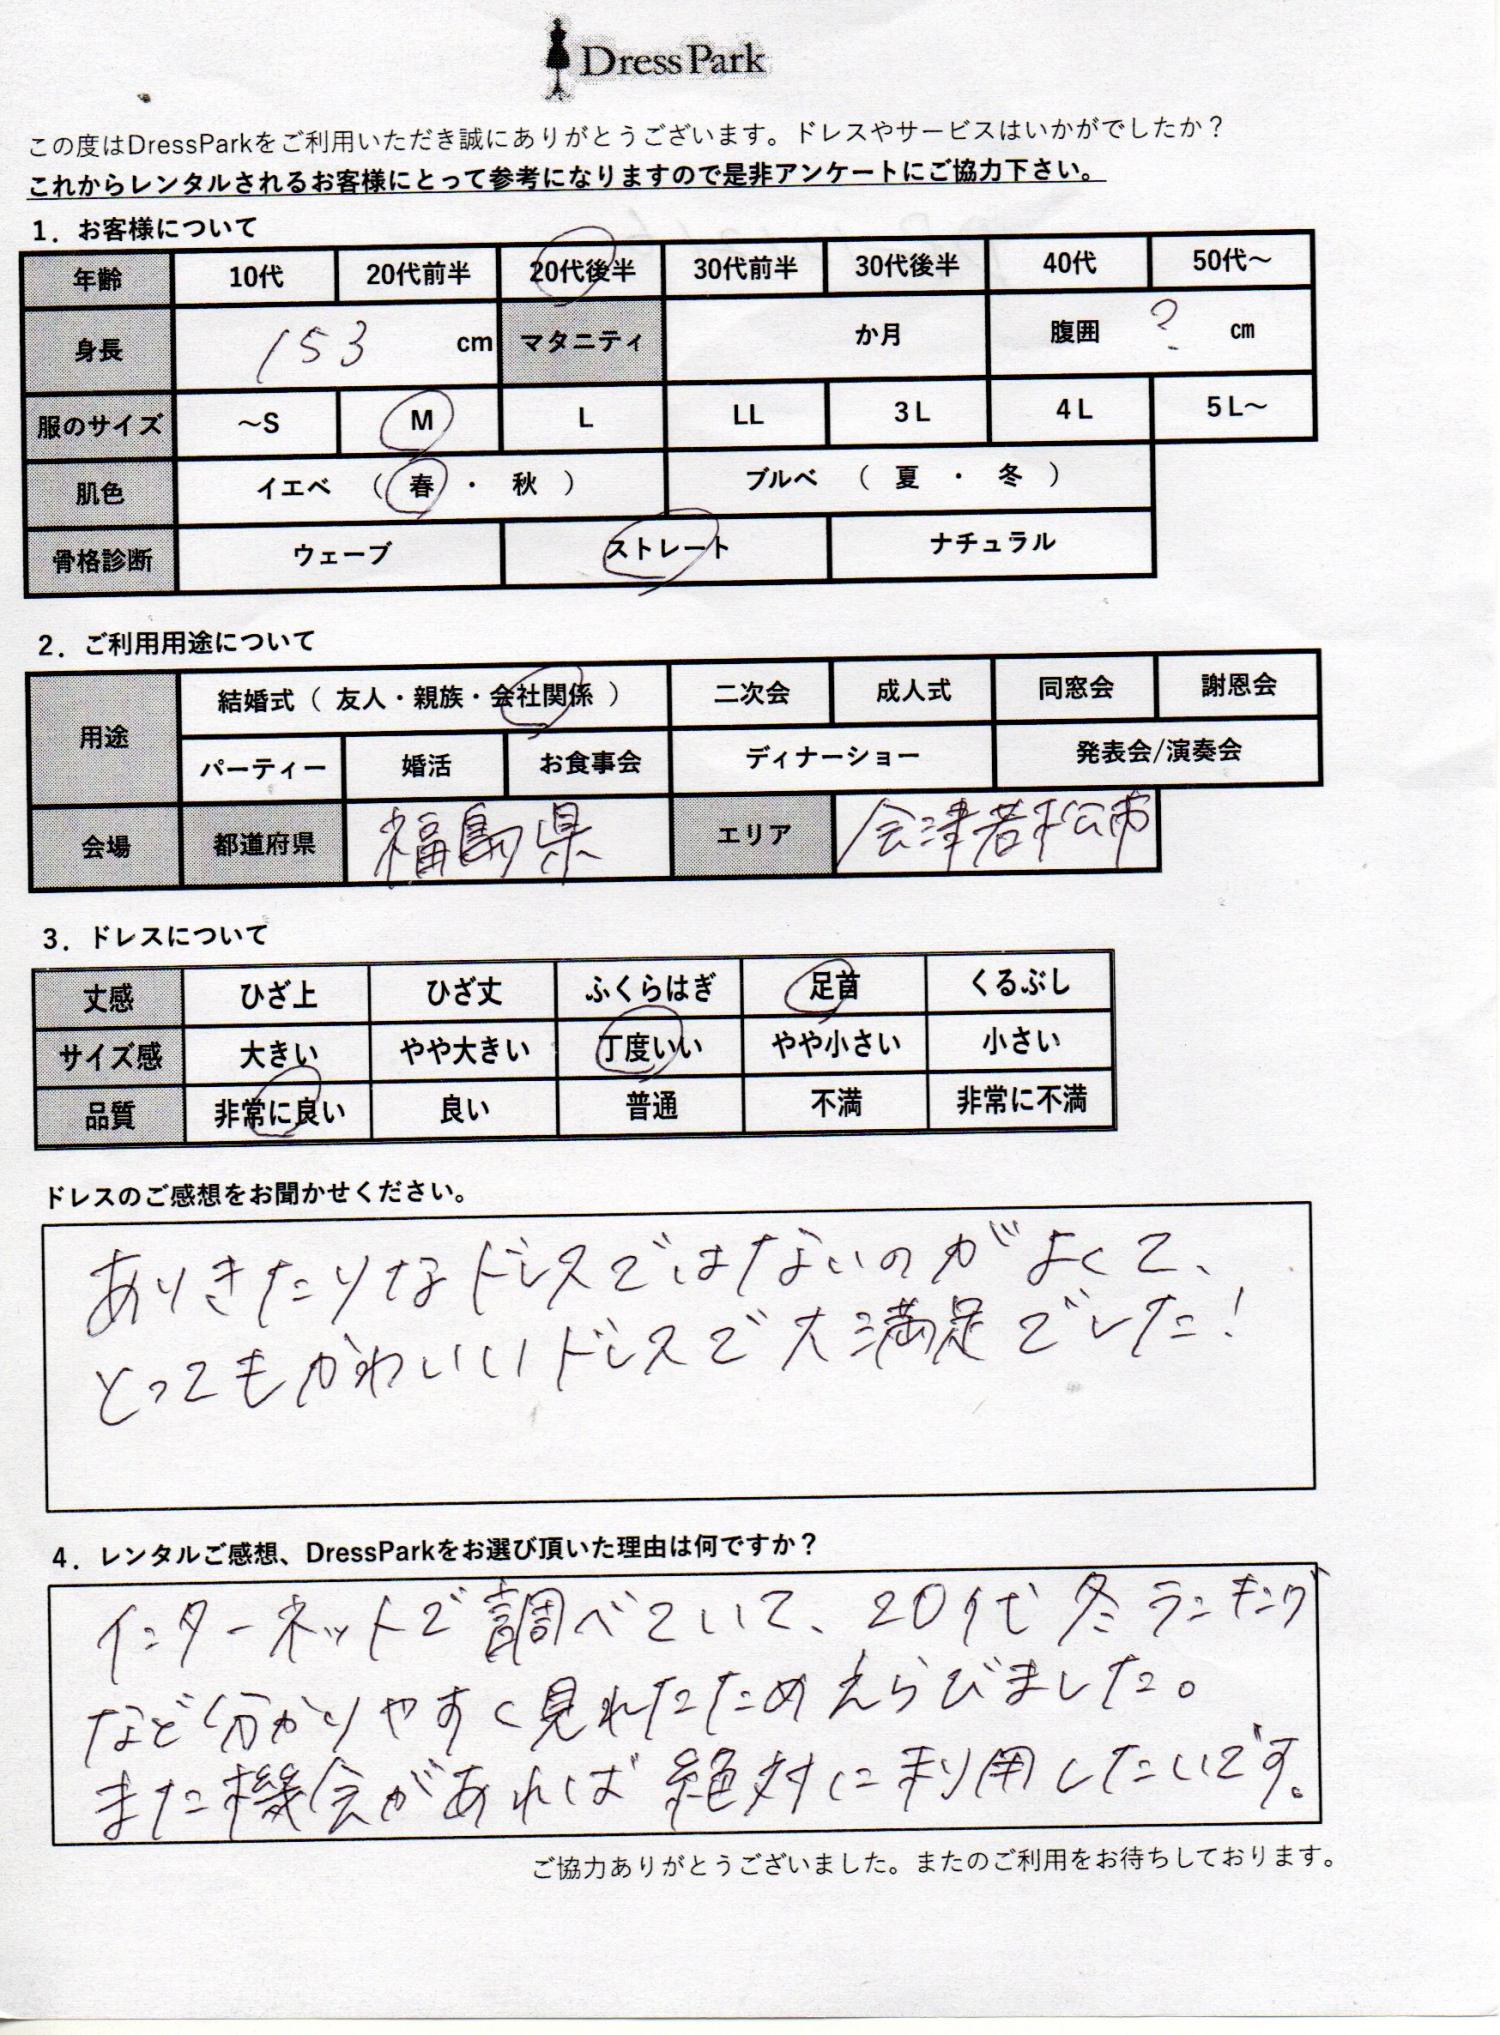 Dress Park
この度はDressParkをご利用いただき誠にありがとうございます。ドレスやサービスはいかがでしたか？
これからレンタルされるお客様にとって参考になりますので是非アンケートにご協力下さい。
1．お客様について
年齢 10代 20代前半 20代後半 30代前半 30代後半 40代 50代～
身長 153 cm マタニティ か月 腹囲 ? cm
服のサイズ ～S M L LL 3L 4L 5L～
肌色 イエベ （ 春 ・ 秋 ） ブルベ （ 夏 ・ 冬 ）
骨格診断 ウェーブ ストレート ナチュラル
2．ご利用用途について
用途 結婚式（ 友人・親族・会社関係 ） 二次会 成人式 同窓会 謝恩会
パーティー 婚活 お食事会 ディナーショー 発表会/演奏会
会場 都道府県 福島県 エリア 会津若松市
3．ドレスについて
丈感 ひざ上 ひざ丈 ふくらはぎ 足首 くるぶし
サイズ感 大きい やや大きい 丁度いい やや小さい 小さい
品質 非常に良い 良い 普通 不満 非常に不満
ドレスのご感想をお聞かせください。
ありきたりなドレスではないのがよくて、
とってもかわいいドレスで大満足でした!
4．レンタルご感想、DressParkをお選び頂いた理由は何ですか？
インターネットで調べていて、20代冬ランキング
など分かりやすく見れたためえらびました。
また機会があれば絶対に利用したいです。
ご協力ありがとうございました。またのご利用をお待ちしております。